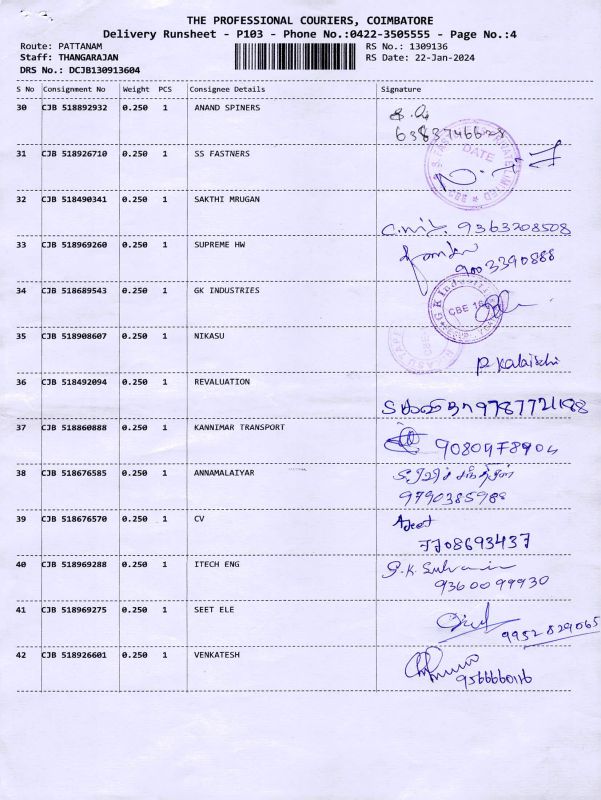 THE PROFESSIONAL COURIERS, COIMBATORE
Delivery Runsheet - P103 - Phone No.:0422-3505555 - Page No.:4
Route: PATTANAM RS No.: 1309136
Staff: THANGARAJAN RS Date: 22-Jan-2024
DRS No.: DCJB130913604
S No Consignment No Weight PCS Consignee Details Signature
30 CJB 518892932 0.250 1 ANAND SPINERS
31 CJB 518926710 0.250 1 SS FASTNERS
DATE
32 CJB 518490341 0.250 1 SAKTHI MRUGAN
9363708508
33 CJB 518969260 0.250 1 SUPREME HW
9003390888
34 CJB 518689543 0.250 1 GK INDUSTRIES
GK Industri
CBE
35 CJB 518908607 0.250 1 NIKASU
P. Kalaiselvi
36 CJB 518492094 0.250 1 REVALUATION
37 CJB 518860888 0.250 1 KANNIMAR TRANSPORT
38 CJB 518676585 0.250 1 ANNAMALAIYAR
9790385988
39 CJB 518676570 0.250 1 CV
7708693437
40 CJB 518969288 0.250 1 ITECH ENG
9360099930
41 CJB 518969275 0.250 1 SEET ELE
9952829065
42 CJB 518926601 0.250 1 VENKATESH